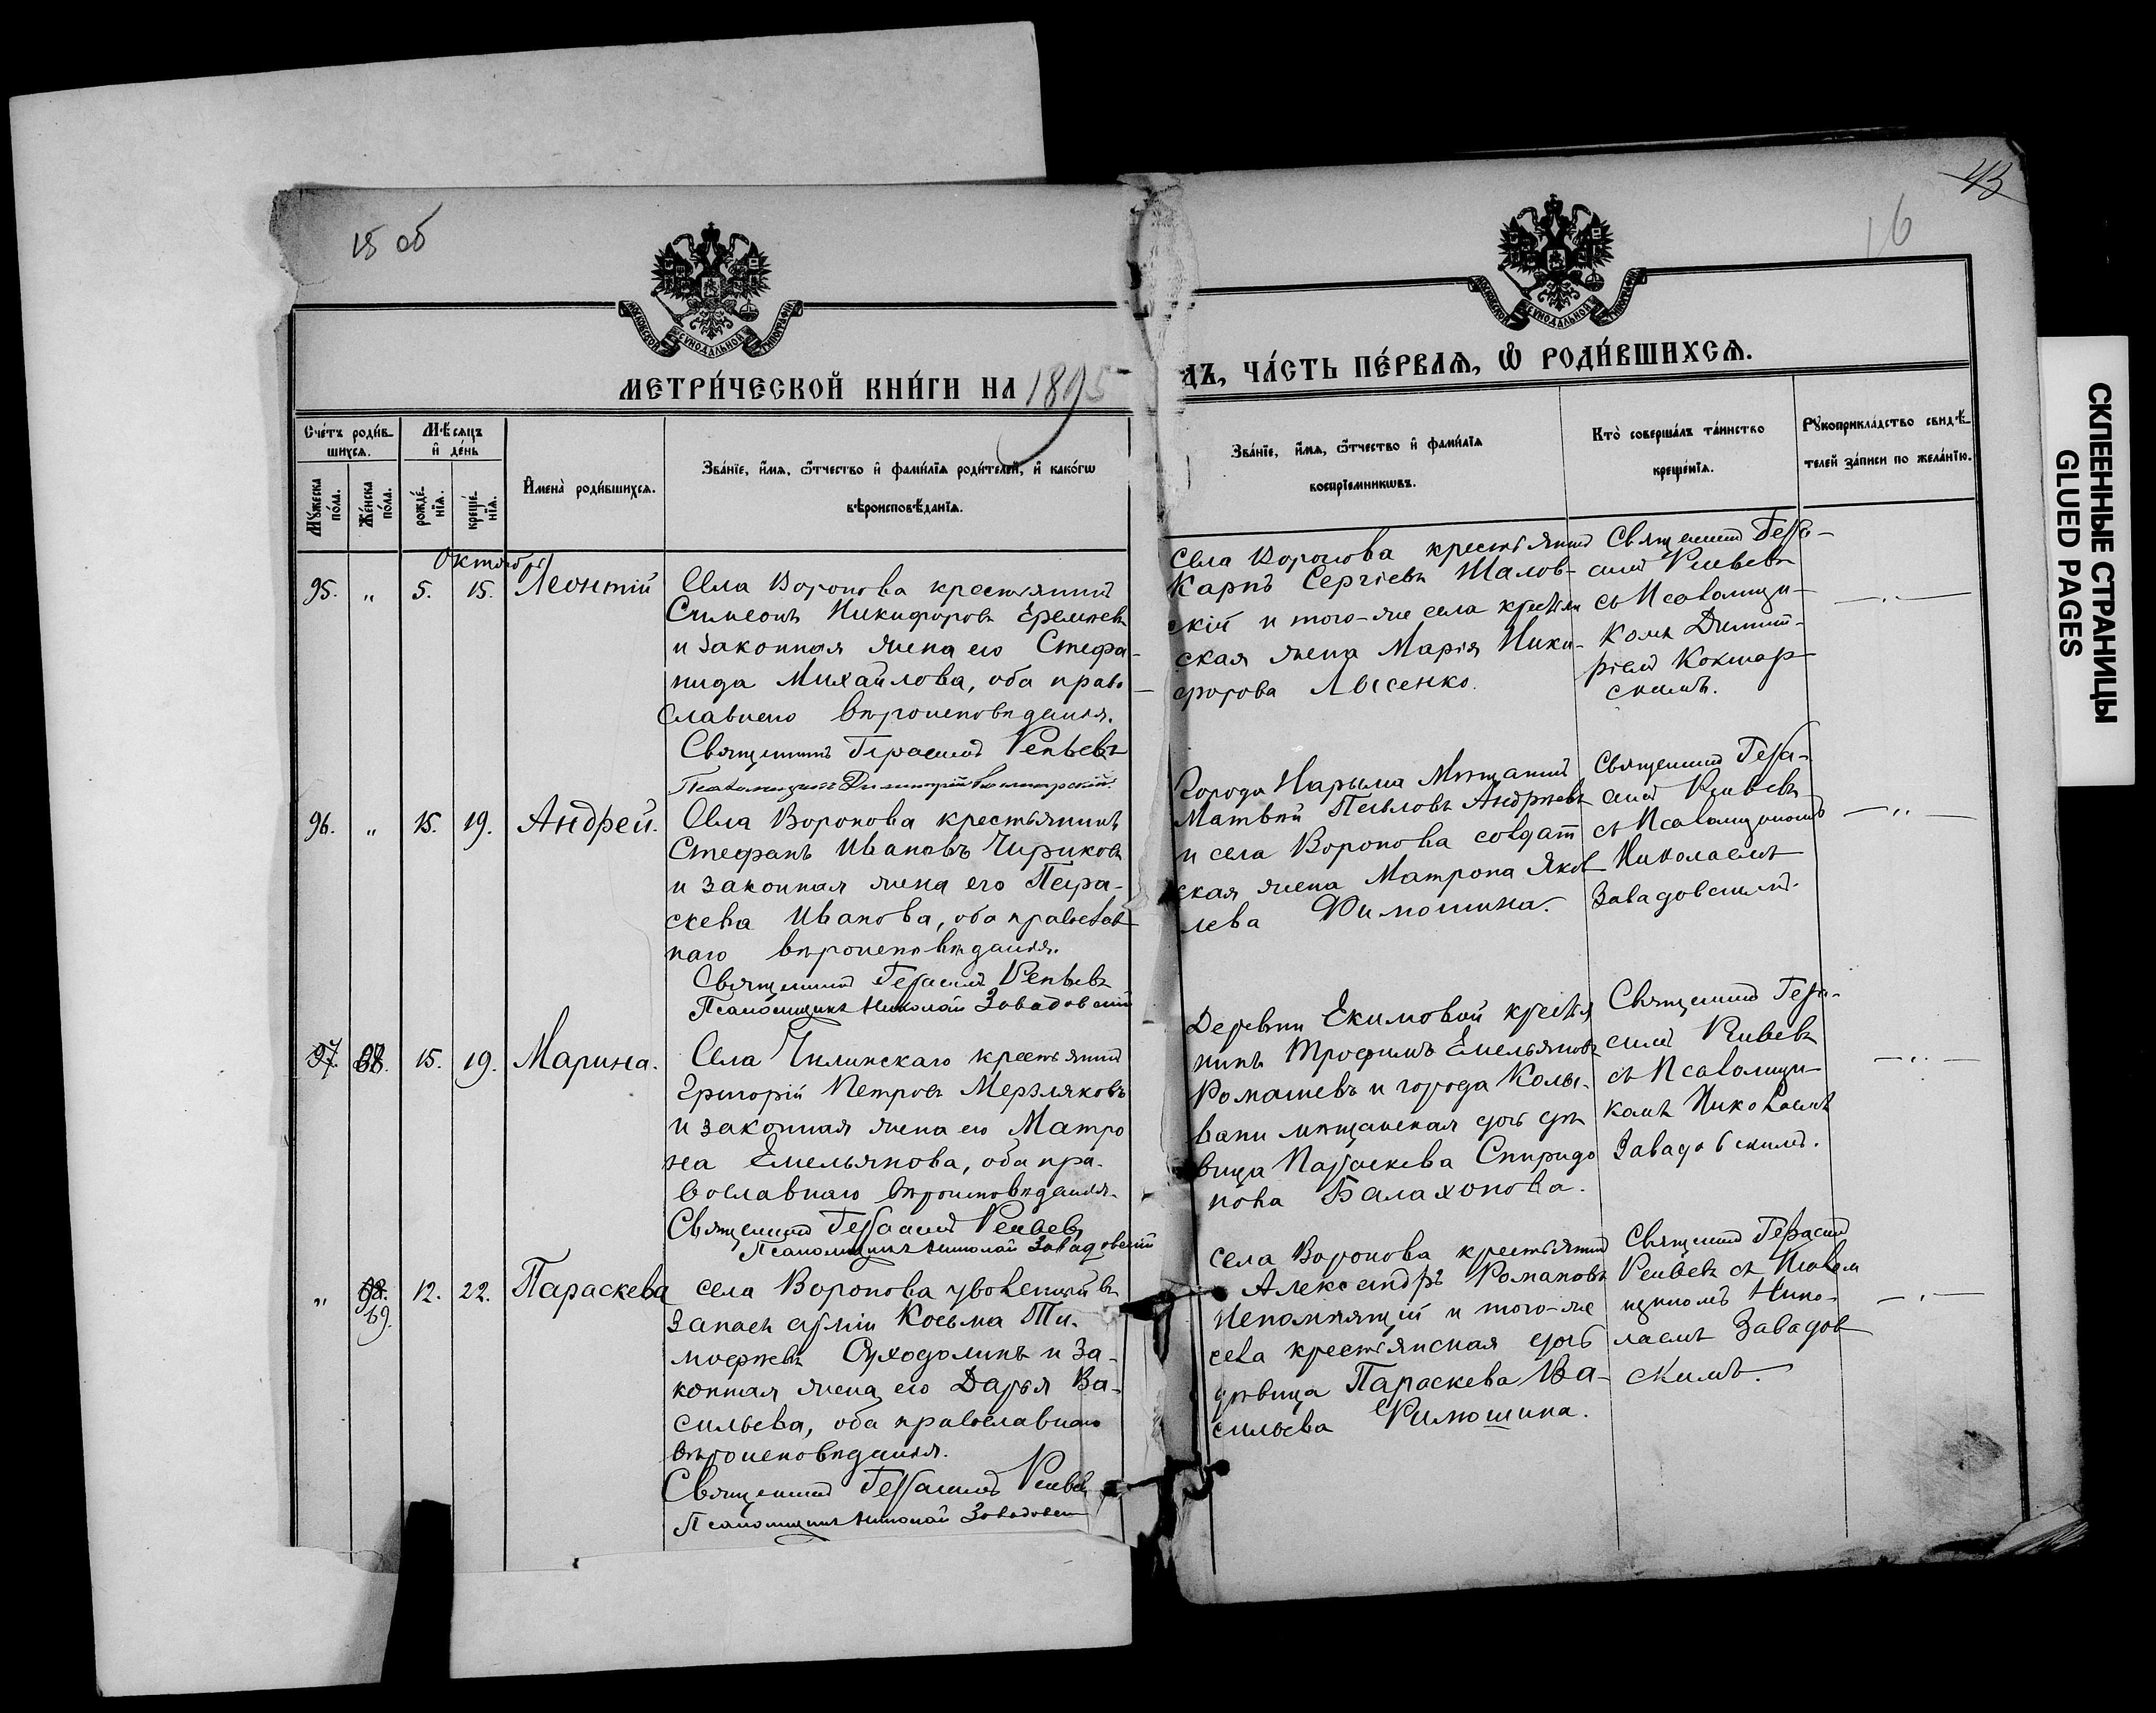 15 об
МОСКОВСКОЙ СѴНОДАЛЬНОЙ ТИПОГРАФІИ
МЕТРИ́ЧЕСКОЙ КНИ́ГИ НА 1895
Сче́тъ роди́в-
шихсѧ.
Мѣ́сѧцъ
и҆ де́нь
Мꙋ́жеска
по́ла.
Же́нска
по́ла.
рожде́-
нїѧ.
креще́-
нїѧ.
И҆мена̀ роди́вшихсѧ.
Зва́нїе, и҆́мѧ, ѻ҆́тчество и҆ фами́лїѧ роди́телей, и҆ како́гѡ
вѣроисповѣ́данїѧ.
Октября
95. „ 5. 15. Леонтій
Села Воронова крестьянинъ
Симеонъ Никифоровъ Еремѣевъ
и законная жена его Стефа-
нида Михайлова, оба право-
славнаго вѣроисповѣданія.
Священникъ Герасимъ Репьевъ
Псаломщикъ Димитрій Кокшарскій.
96. „ 15. 19. Андрей.
Села Воронова крестьянинъ
Стефанъ Ивановъ Чириковъ
и законная жена его Пара-
скева Иванова, оба православ-
наго вѣроисповѣданія.
Священникъ Герасимъ Репьевъ
Псаломщикъ Николай Завадовскій
97. 15. 19. Марина.
Села Чилинскаго крестьянинъ
Григорій Петровъ Мерзляковъ
и законная жена его Матро
на Емельянова, оба пра-
вославнаго вѣроисповѣданія.
Священникъ Герасимъ Репьевъ
Псаломщикъ Николай Завадовскій
„ 98. 12. 22. Параскева
69.
села Воронова уволенный въ
запасъ арміи Косьма Ти-
мофѣевъ Суходолинъ и за-
конная жена его Дарья Ва-
сильева, оба православнаго
вѣроисповѣданія.
Священникъ Герасимъ Репьевъ
Псаломщикъ Николай Завадовскій
43
16
МОСКОВСКОЙ СѴНОДАЛЬНОЙ ТИПОГРАФІИ
ДЪ, ЧА́СТЬ ПЕ́РВАѦ, Ѿ РОДИ́ВШИХСѦ.
Зва́нїе, и҆́мѧ, ѻ҆́тчество и҆ фами́лїѧ
воспрїе́мникѡвъ.
Кто̀ соверша́лъ та́инство
креще́нїѧ.
Рꙋкоприкла́дство свидѣ́-
телей за́писи по жела́нїю.
Села Воронова крестьянинъ
Карпъ Сергіевъ Шалов-
скій и того-же села крестьян
ская жена Марія Ники-
форова Лысенко.
Священникъ Гера-
симъ Репьевъ
съ Псаломщи-
комъ Димит-
ріемъ Кокшар-
скимъ.
Города Нарыма Мѣщанинъ
Матвѣй Павловъ Андреевъ
и села Воронова солдат
ская жена Матрона Яков
лева Филюшина.
Священникъ Гера-
симъ Репьевъ
съ Псаломщикомъ
Николаемъ
Завадовскимъ.
Деревни Екимовой крестья
нинъ Трофимъ Емельяновъ
Ромашевъ и города Колы-
вани мѣщанская дочь дѣ
вица Параскева Спиридо
нова Балахонова.
Священникъ Гера-
симъ Репьевъ
съ Псаломщи-
комъ Николаемъ
Завадовскимъ.
Села Воронова крестьянинъ
Александръ Романовъ
Непомнящій и того-же
села крестьянская дочь
дѣвица Параскева Ва-
сильева Филюшина.
Священникъ Герасимъ
Репьевъ съ Псалом
щикомъ Нико-
лаемъ Завадов
скимъ.
СКЛЕЕННЫЕ СТРАНИЦЫ
GLUED PAGES